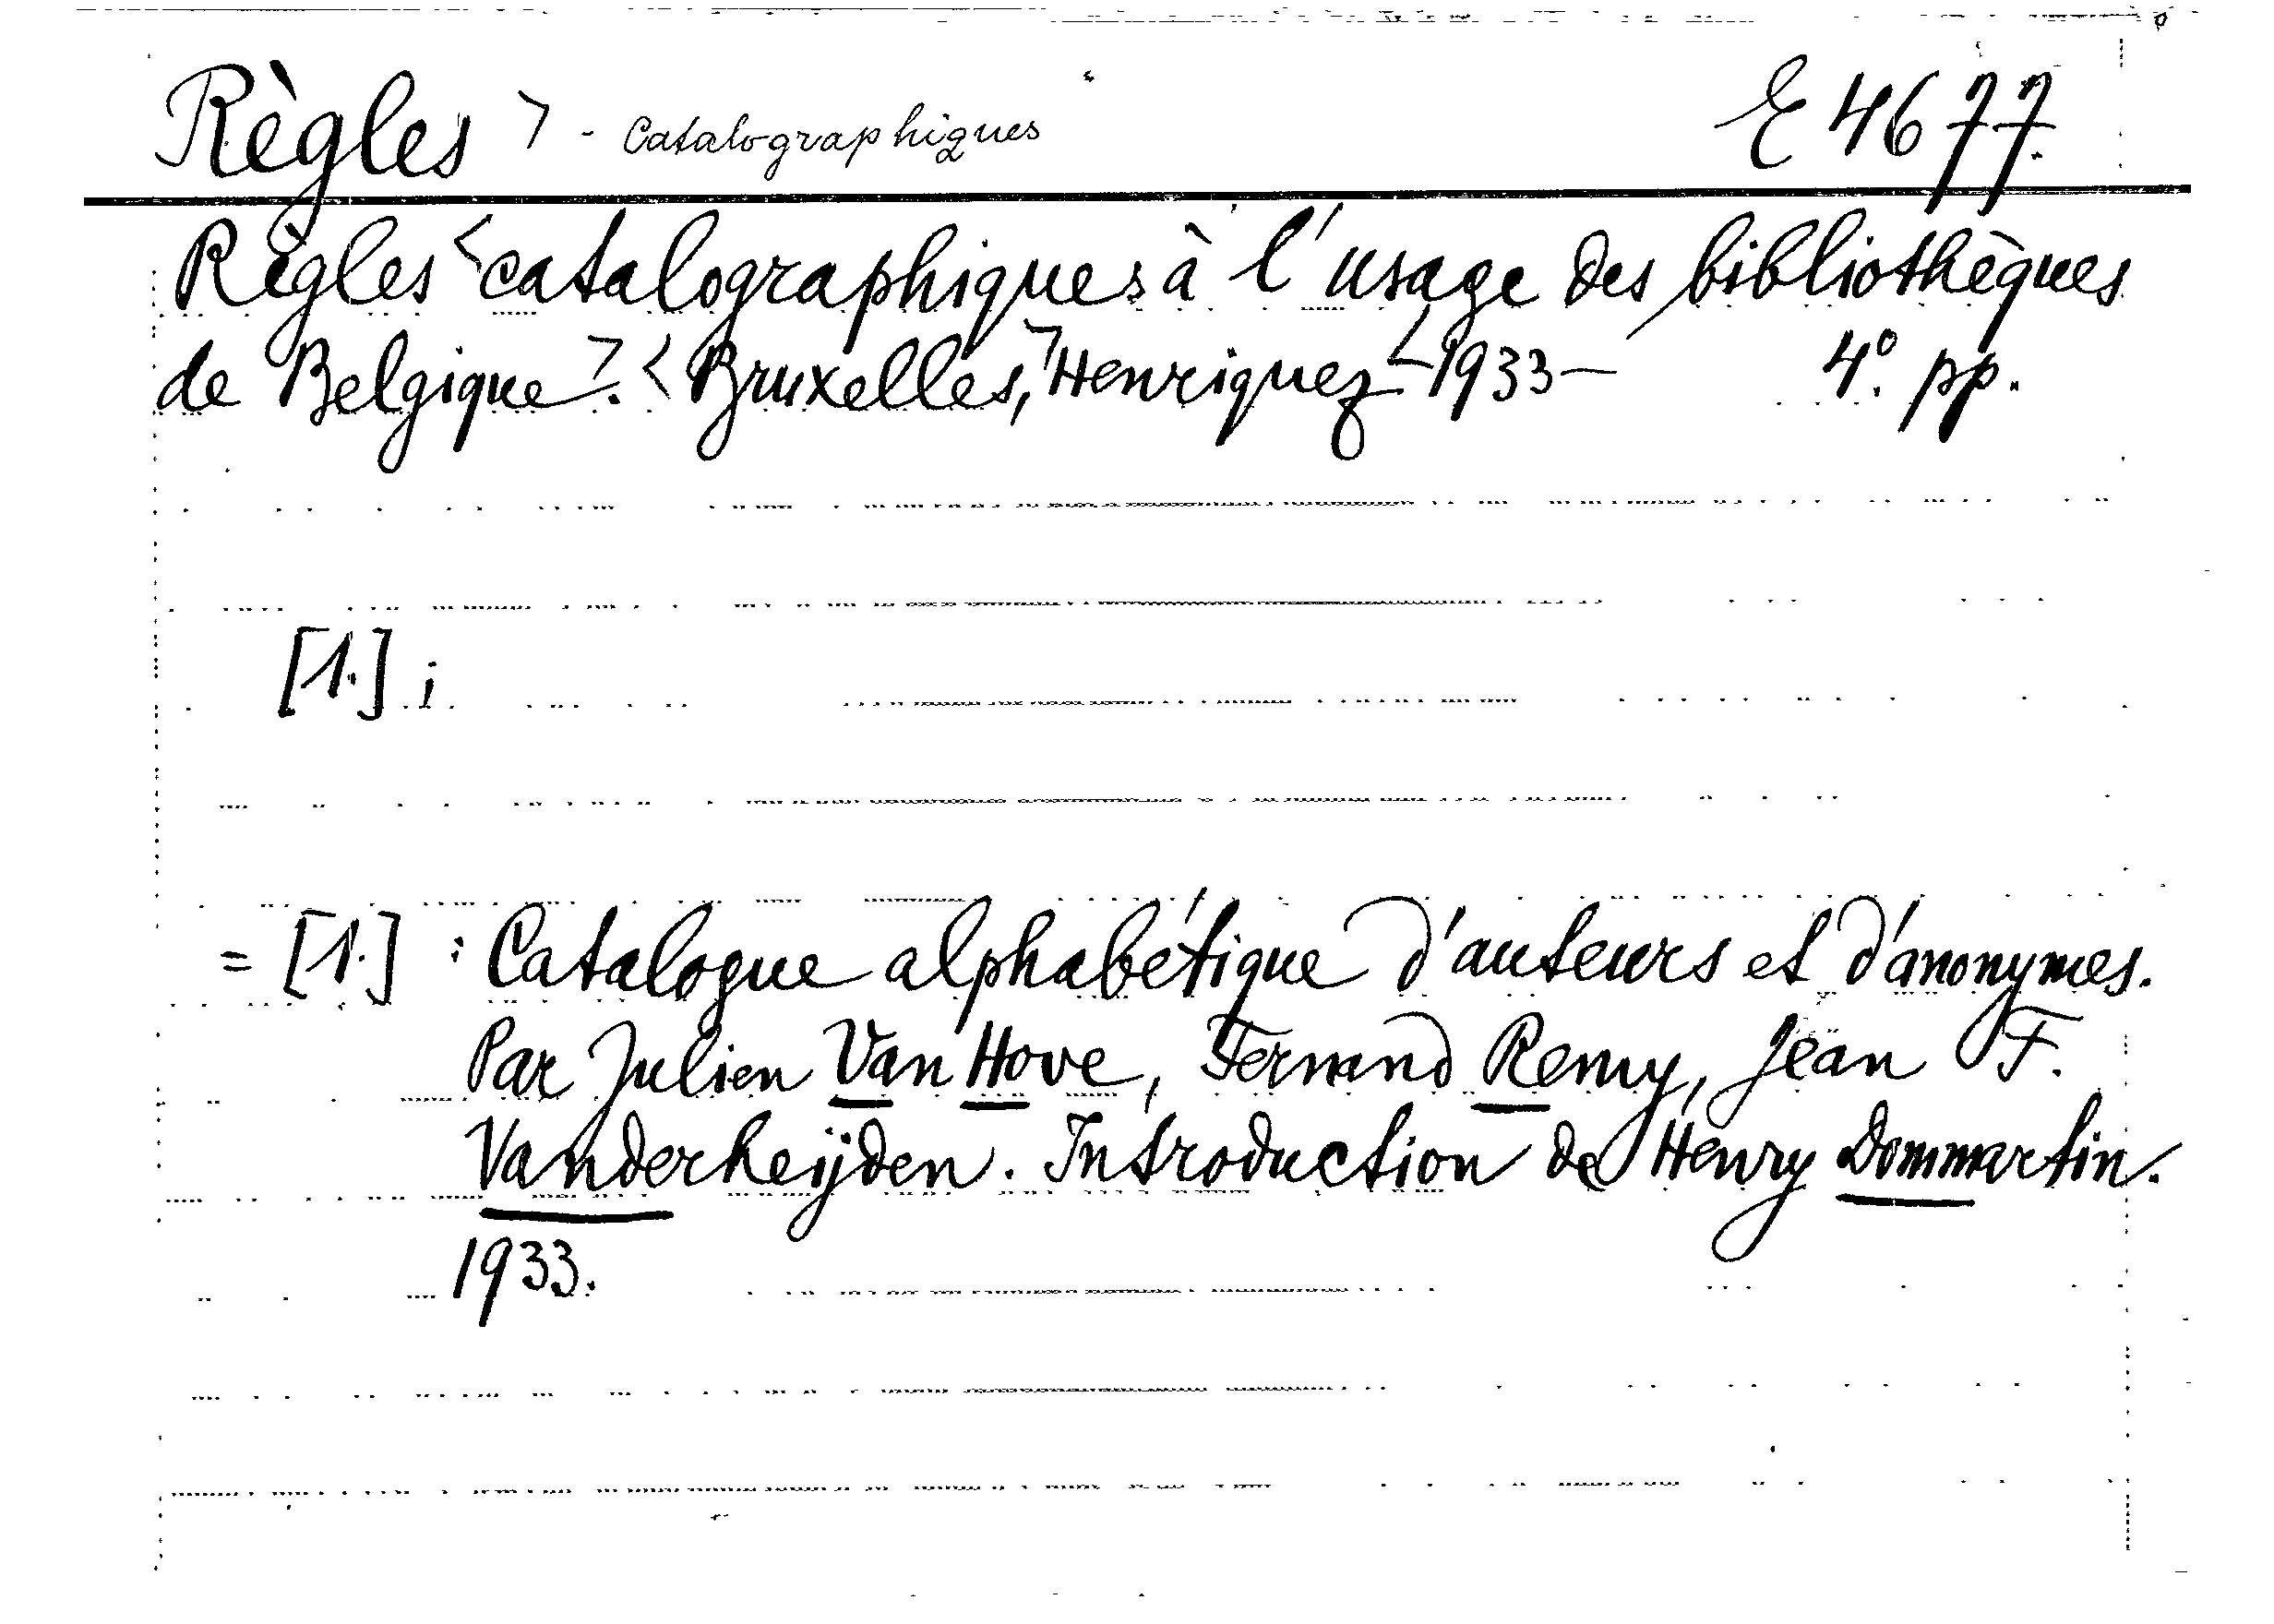 Règles > - Catalographiques E 4677.
Règles <catalographiques à l'usage des bibliothèques
de Belgique>. <Bruxelles,> Henriquez <-1933- 4° pp.
[1.] ;
= [1.] : Catalogue alphabétique d'auteurs et d'anonymes.
Par Julien Van Hove, Fernand Remy, Jean F.
Vanderheÿden. Introduction de Henry Dommartin.
1933.